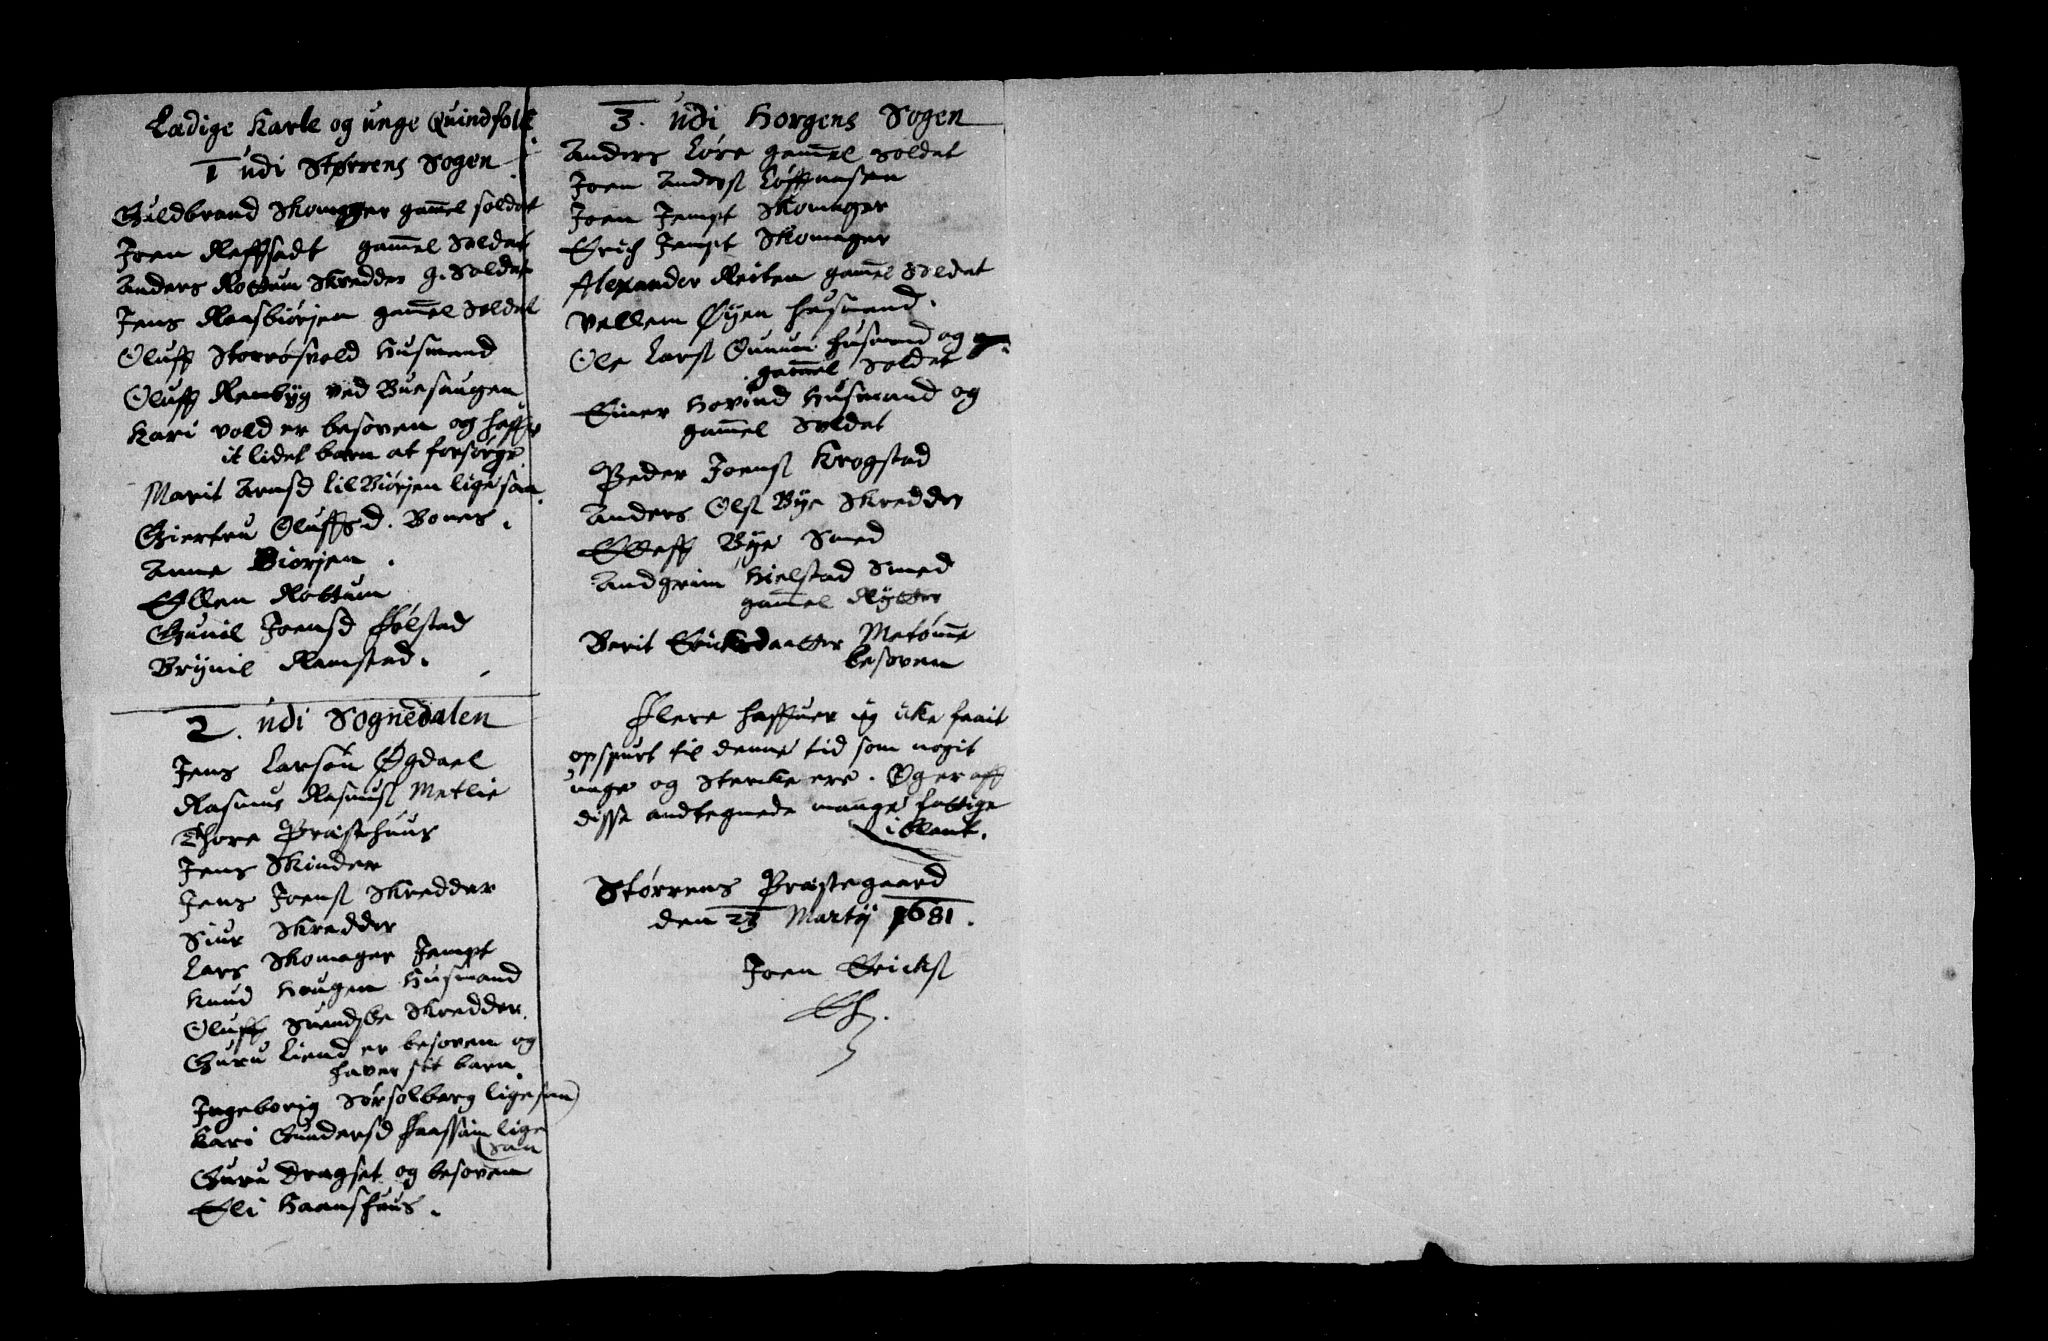 Ladige Karle og unge Quindfolk
1 udi Størrens Sogen
Guldbrand Skomager gamel soldat
Joen Reffsadt gamel Soldat
Anders Rottum Skredder g. Soldat
Jens Raasbiørjen gamel Soldat
Oluff Storrøsvold Husmand
Oluff Rembyg ved Buesaugen
Kari vold er besoven og haffr
it lidet barn at forsørge
Marit Arnsd Lilbiørjen lige saa
Giertru Oluffsd. Bones.
Anne Biorjen.
Ellen Rottum
Gunil Joensd Følstad
Brynil Ramstad.
2. udi Sognedalen
Jens Larsøn Øgdael
Rasmus Rasmusl Metlie
Thore Præstehuus
Jens Skinder
Jens Joensl Skredder
Siur Skredder
Lars Skomager Jempt
Knud Hougen Husmand
Oluff Skredder.
Guru Liend er besoven og
haver sit barn.
Ingeborig Sørsolberg lige saa
Kari Gundersd lige
saa
Guru Dragset og besovem
Eli Haanshuus.
3. udi Horgens Sogen
Anders Løre gamel soldat
Joen Andersl
Joen Jempt Skomager
Erich Jempt Skomager
Alexander Reiten gamel Soldat
Vellem Øyen husmand.
Ole Larsl husmand og
gammel Soldat
Einer Hovind Husmand og
gamel Soldat
Peder Joensl Krogstad
Anders Olsl Bye Skredder
Elleff Bye Smed
Andgrim Hielstad Smed
gamel Rytter
Berit Ericksdaatter Metømme
besovem
Flere haffuer ieg icke faait
opspurt til denne tid som nogit
unge og Sterke ere. Og er aff
disse andtegnede mange fattige
iblant.
Størrens Præstegaard
den 23 Martij 1681.
Joen Ericksl